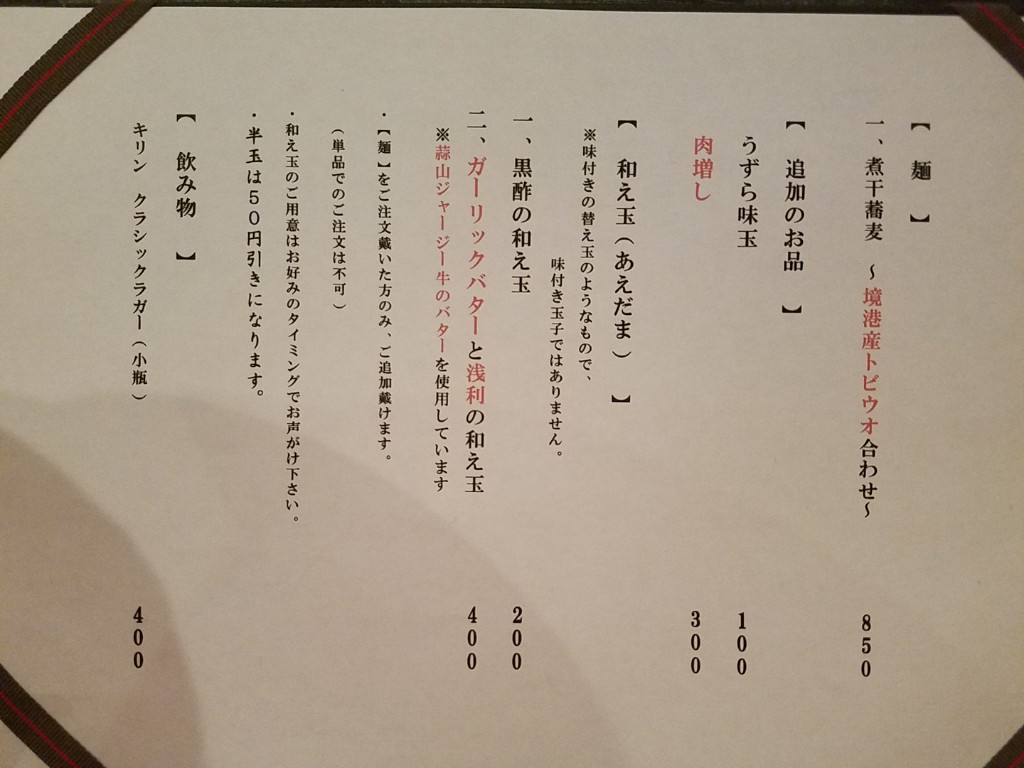 【 麺 】
一、煮干蕎麦 ～境港産トビウオ合わせ～ 850
【 追加のお品 】
うずら味玉 100
肉増し 300
【 和え玉(あえだま) 】
※味付きの替え玉のようなもので、
味付き玉子ではありません。
一、黒酢の和え玉 200
二、ガーリックバターと浅利の和え玉 400
※蒜山ジャージー牛のバターを使用しています
・【麺】をご注文戴いた方のみ、ご追加戴けます。
(単品でのご注文は不可)
・和え玉のご用意はお好みのタイミングでお声がけ下さい。
・半玉は50円引きになります。
【 飲み物 】
キリン クラシックラガー(小瓶) 400